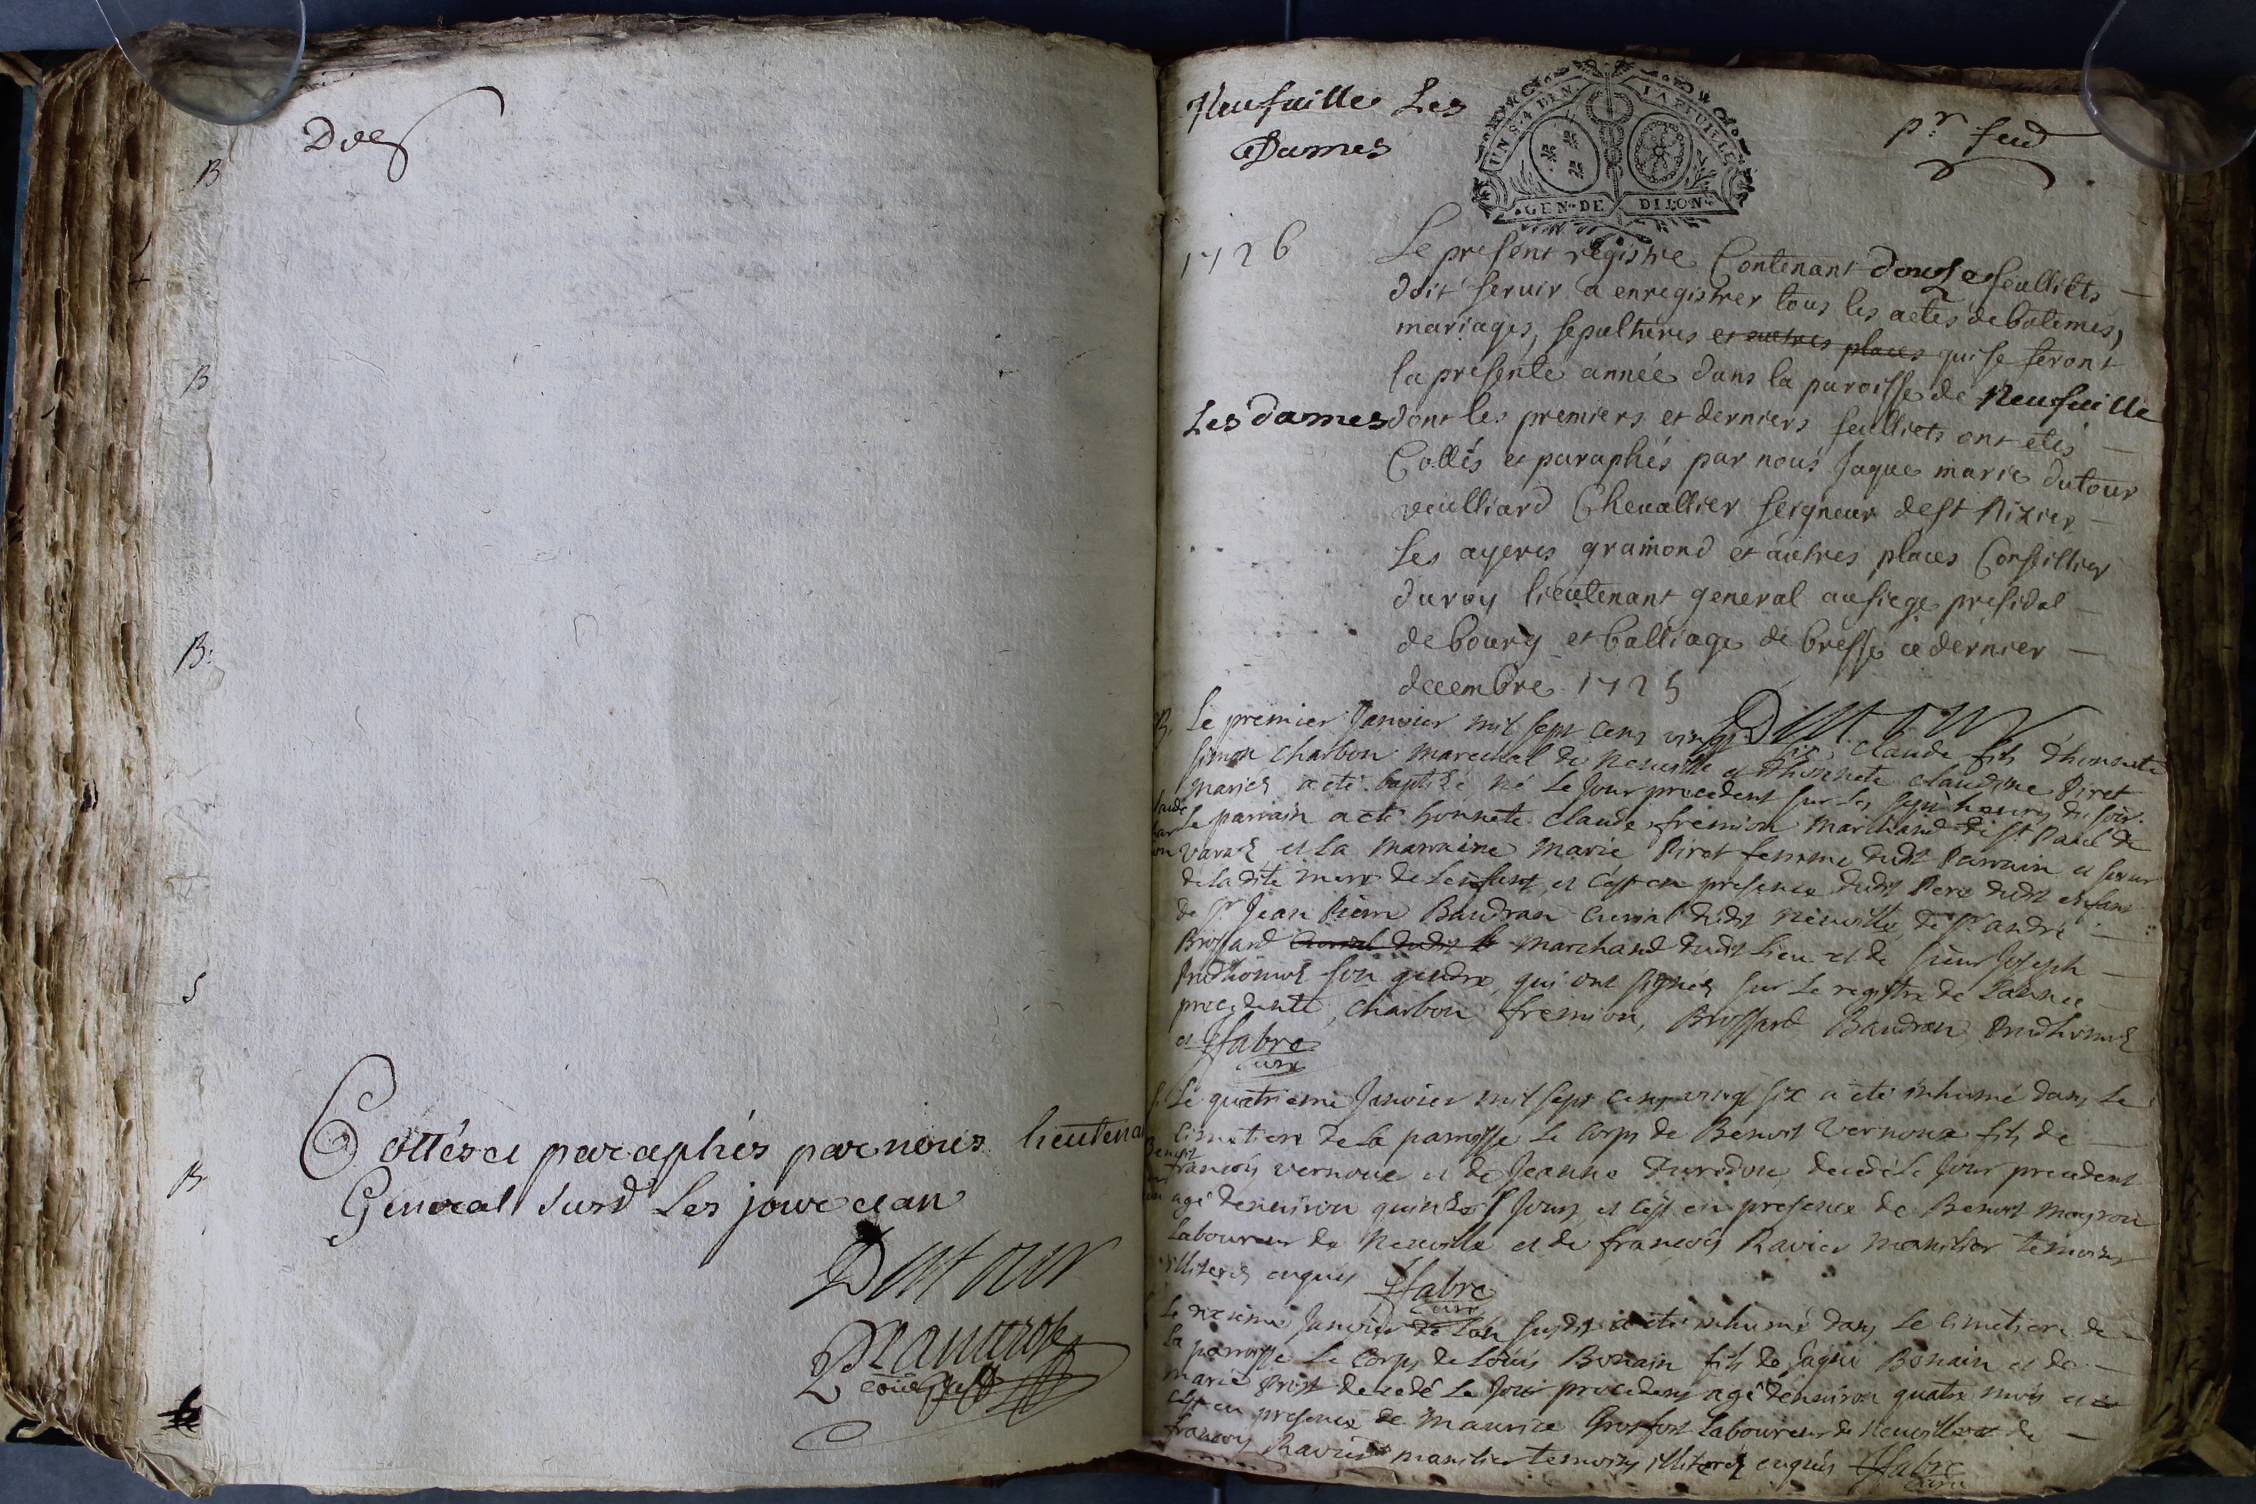 B
B
B:
S
B
Cottés et paraphés par nous lieutena
General susd les jour et an
Dutour
Neufuille Les
Dames
UN S. 4 DEN. LA FEUILLE
GEN. DE DIION
pr feud
1726
Le present registre Contenant douze feulliets
doit seruir a enregistrer tous les actes de batemes,
mariages, sepultures et autres places qui se feront
la presente année dans la paroisse de Neufuille
Les dames dont les premiers et derniers feulliets ont etés
Cottés et paraphés par nous Jaque marie dutour
veulliard Cheuallier seigneur de st Nizier
Les ayeres gramond et autres places Conseillier
du roy lieutenant general au siege presidal
de bourg et balliage de bresse ce dernier
decembre 1725
Dutour
B. Le premier Janvier mil sept cens vingt six claude fils d'honnete
simon charbon marechal de Neuville et d'honnete claudine Piret
mariés a été baptisé, né le jour precedent sur les sept heures du soir.
Le parrain a été honnete claude fremion marchand de st Paul de
varax et la marraine marie Piret femme dudt Parrain et soeur
de la dite mere de l'enfant, et c'est en presence dudt Pere dudt enfant
de sr Jean Pierre Baudran curial dudt Neuville, de sr andré
Brossard curial dudt marchand dudt lieu et de sieur Joseph
Prudhomme son gendre, qui ont signés sur le registre de l'année
precedente, charbon fremion, Brossard Baudran Prudhomme
et ffabre
curé
S. Le quatrieme Janvier mil sept cens vingt six a été inhumé dans le
cimetiere de la paroisse le corps de Benoit Vernoux fils de
francois vernoux et de Jeanne decedé le jour precedent
agé d'environ quinze jours et c'est en presence de Benoit mayron
laboureur de Neuville et de francois Ravier manilier temoins
illiterés enquis ffabre
curé
Le sixieme Janvier de l'an susdt a été inhumé dans le cimetiere de
la paroisse le corps de Louis Bonain fils de Jaque Bonain et de
marie decedé le jour precedent agé d'environ quatre mois et
c'est en presence de maurice Grosfort laboureur de Neuville et de
francois Ravier manilier temoins illiterés enquis ffabre
curé